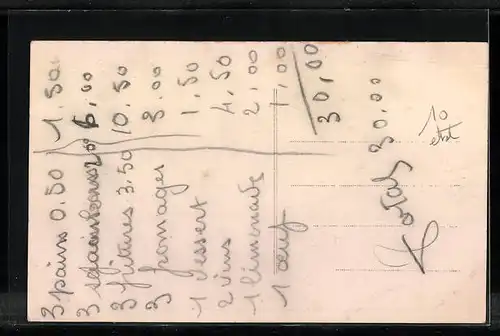 3 pains 0.50 1.50
3 2.00 6.00
3 fritures 3.50 10.50
3 fromages 3.00
1 dessert 1.50
2 vins 4.50
1 limonade 2.00
1 oeuf 1.00
30,00
Total 30.00
10